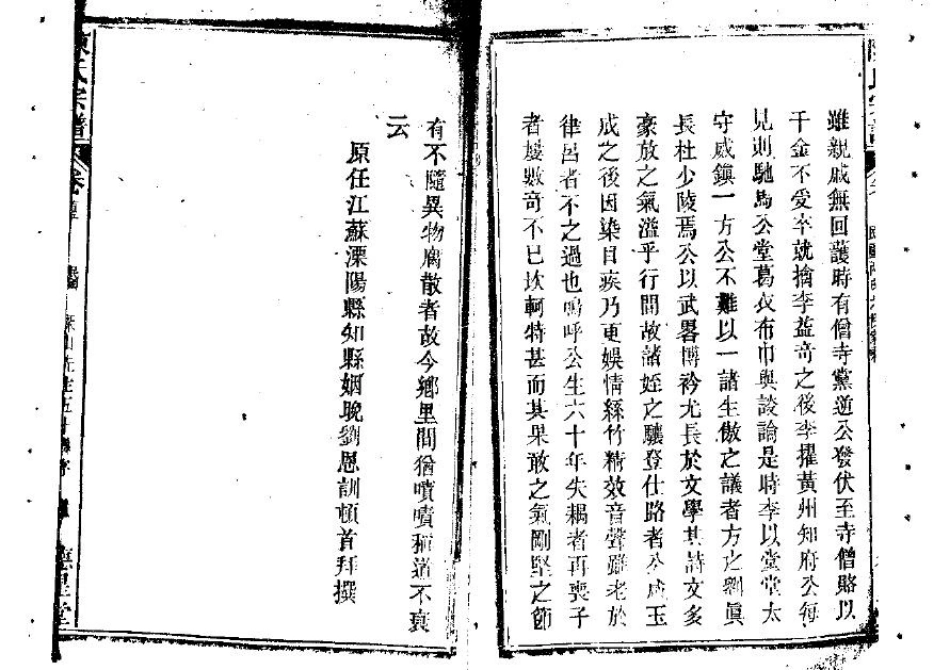 雖親戚無回護時有僧寺黨道公發伏至寺僧賂以
千金不受李就擒李益奇之後李擢黃州知府公每
見則馳馬公堂葛衣布巾與談論是時李以堂堂太
守威鎮一方公不難以一諸生傲之議者方之劉眞
長杜少陵焉公以武畧博衿尤長於文學其詩文多
豪放之氣溢乎行間故諸姪之驤登仕路者公咸玉
成之後因染目疾乃更娛情絲竹精效音聲雖老於
律呂者不之過也嗚呼公生六十年失耦者再喪子
者屢數奇不已坎軻特甚而其果敢之氣剛堅之節
有不隨異物腐散者故今鄉里間猶嘖嘖稱道不衰
云
原任江蘇溧陽縣知縣姻晚劉恩訓頓首拜撰
陳氏宗譜
卷